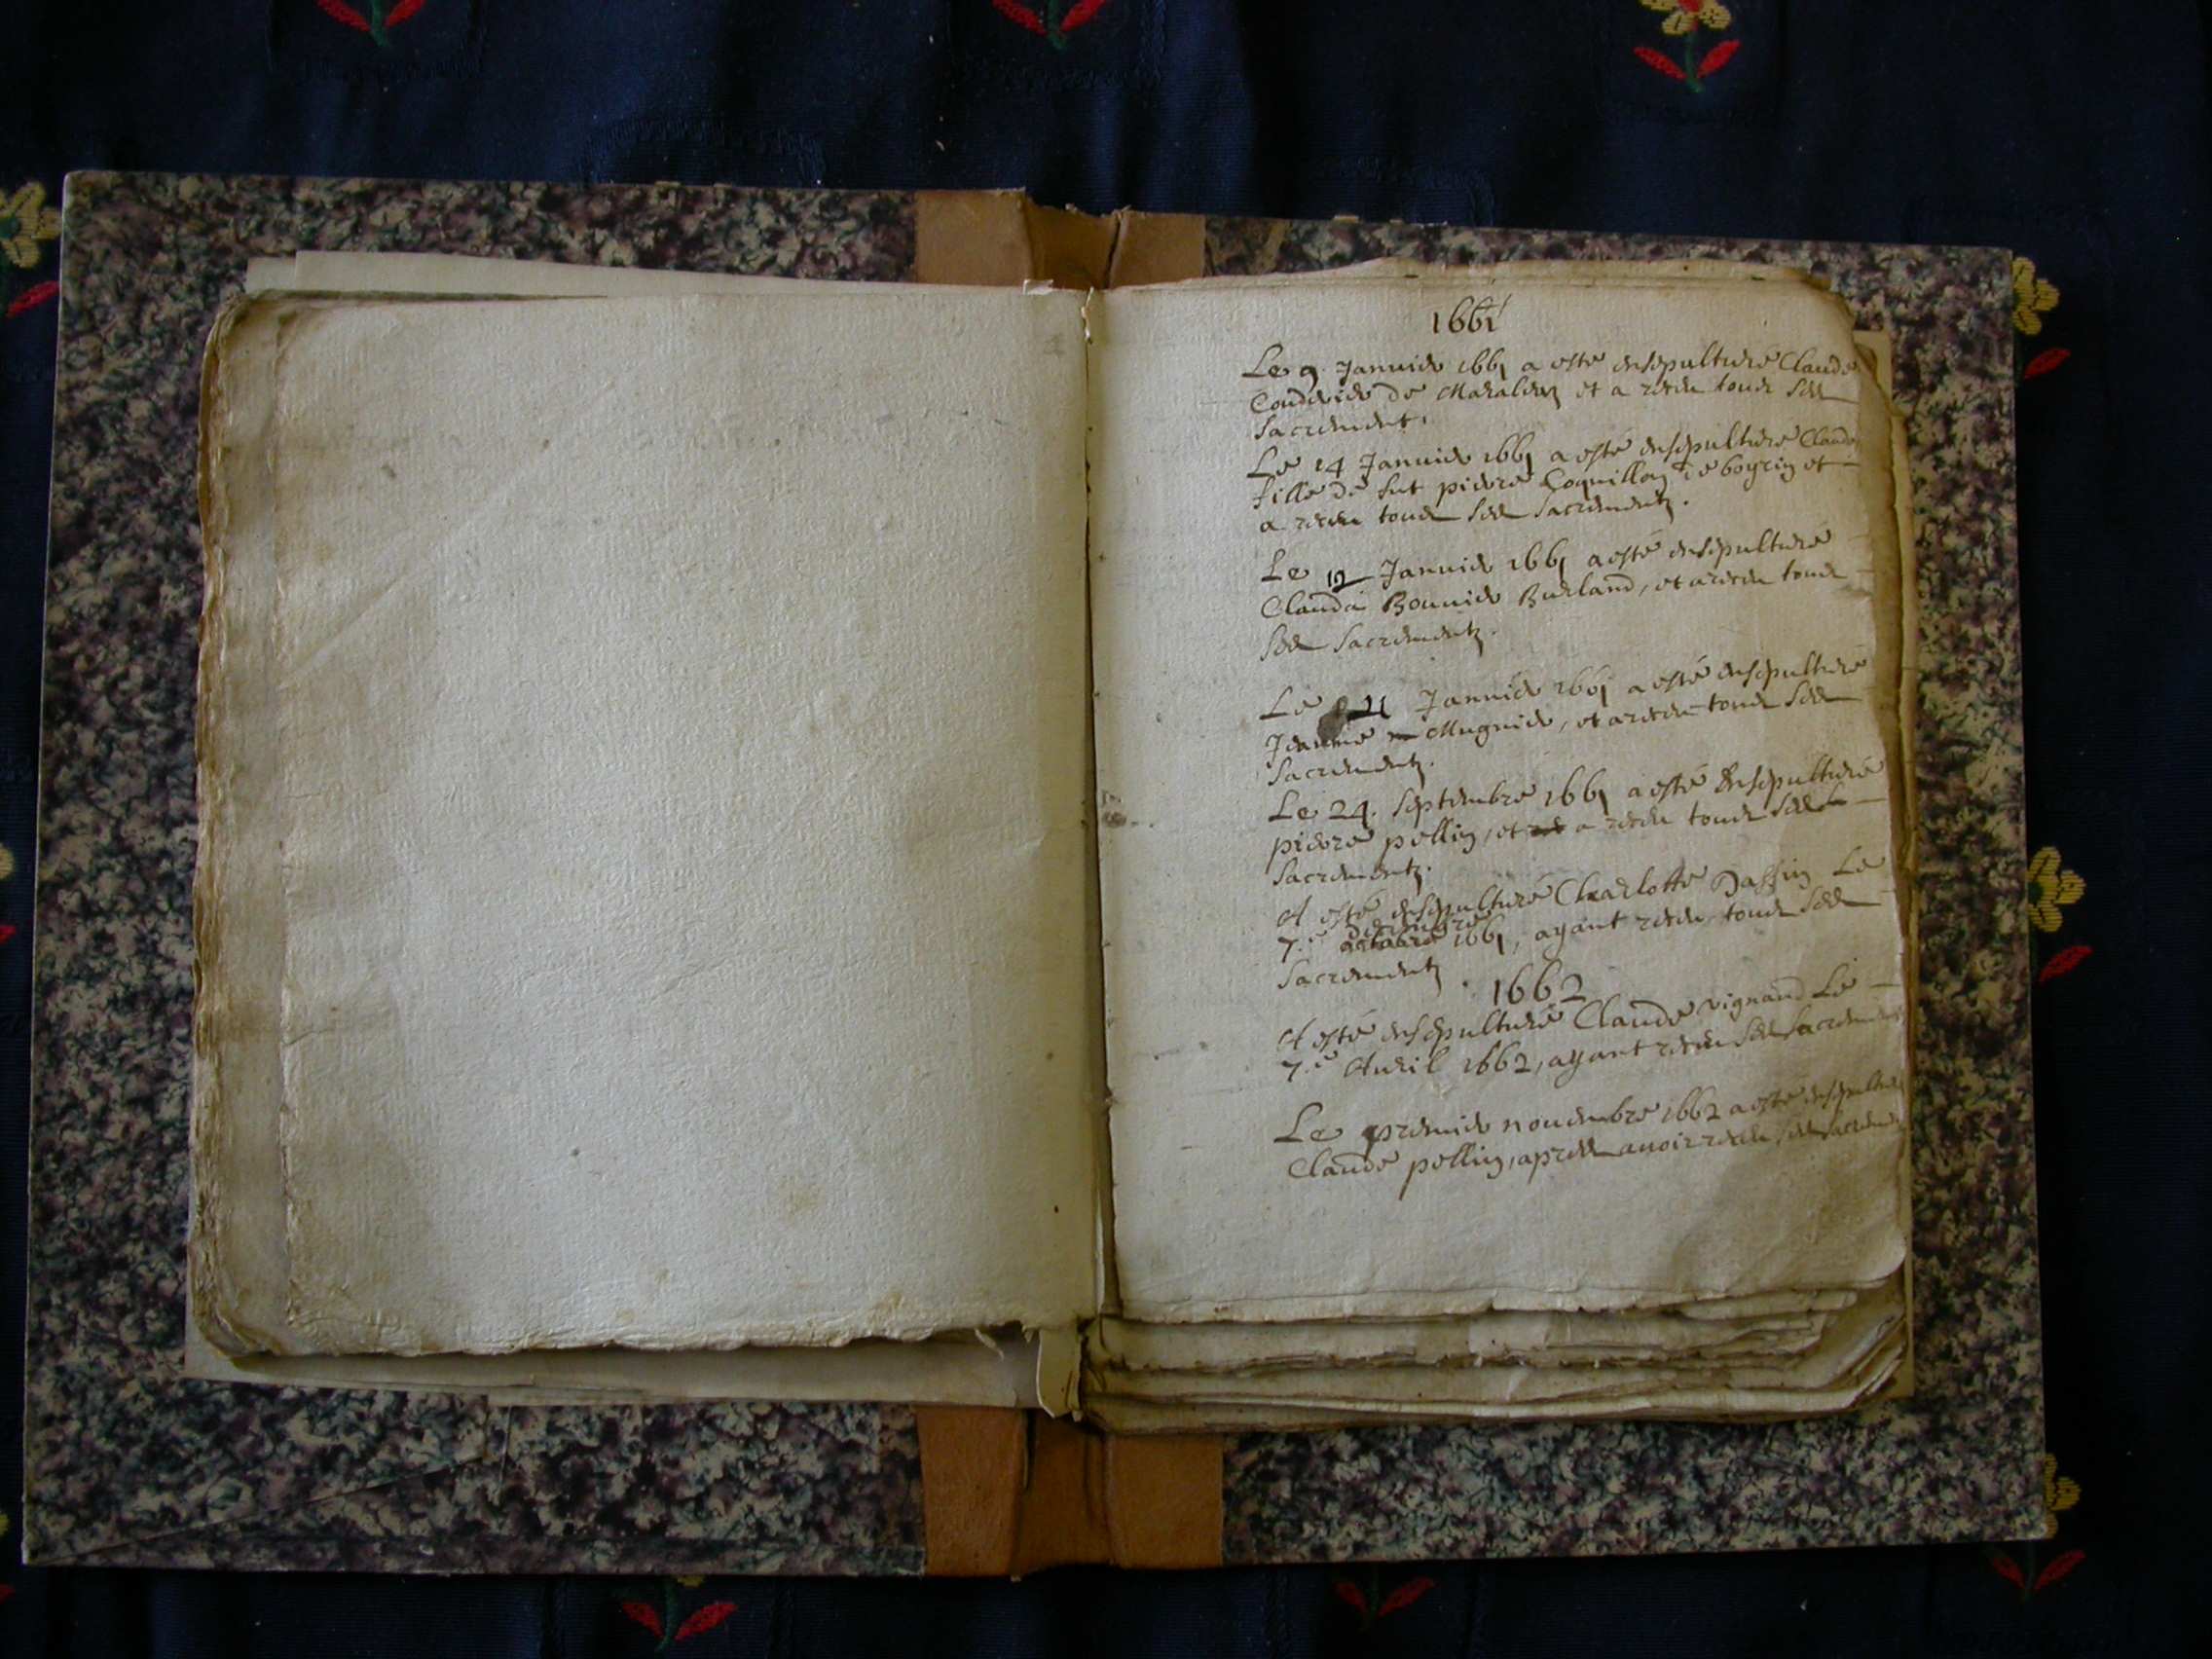 1661
Le 9. Januier 1661 a esté ensepulturé Claude
de et a receu tous ses
Sacrement.
Le 14 Januier 1661 a esté ensepulturé Claude
fille de fut pierre Coquillon de et
a receu tous ses Sacrementz.
Le 19 Januier 1661 a esté ensepulturé
Clauda Bouuier Burland, et a receu tous
ses Sacrementz.
Le 21 Januier 1661 a esté ensepulturé
Jeanne Mugnier, et a receu tous ses
Sacrementz.
Le 24. Septembre 1661 a esté Ensepulturé
pierre pellin, et a receu tous ses
Sacrementz.
A esté ensepulturé Charlotte Le
7.e decembre 1661, ayant receu tous ses
Sacrementz.
1662
A esté ensepulturé Claude vignand Le
7.e Auril 1662, ayant receu ses Sacrementz
Le premier nouembre 1662 a esté ensepulturé
Claude pellin, apres auoir receu ses Sacrementz